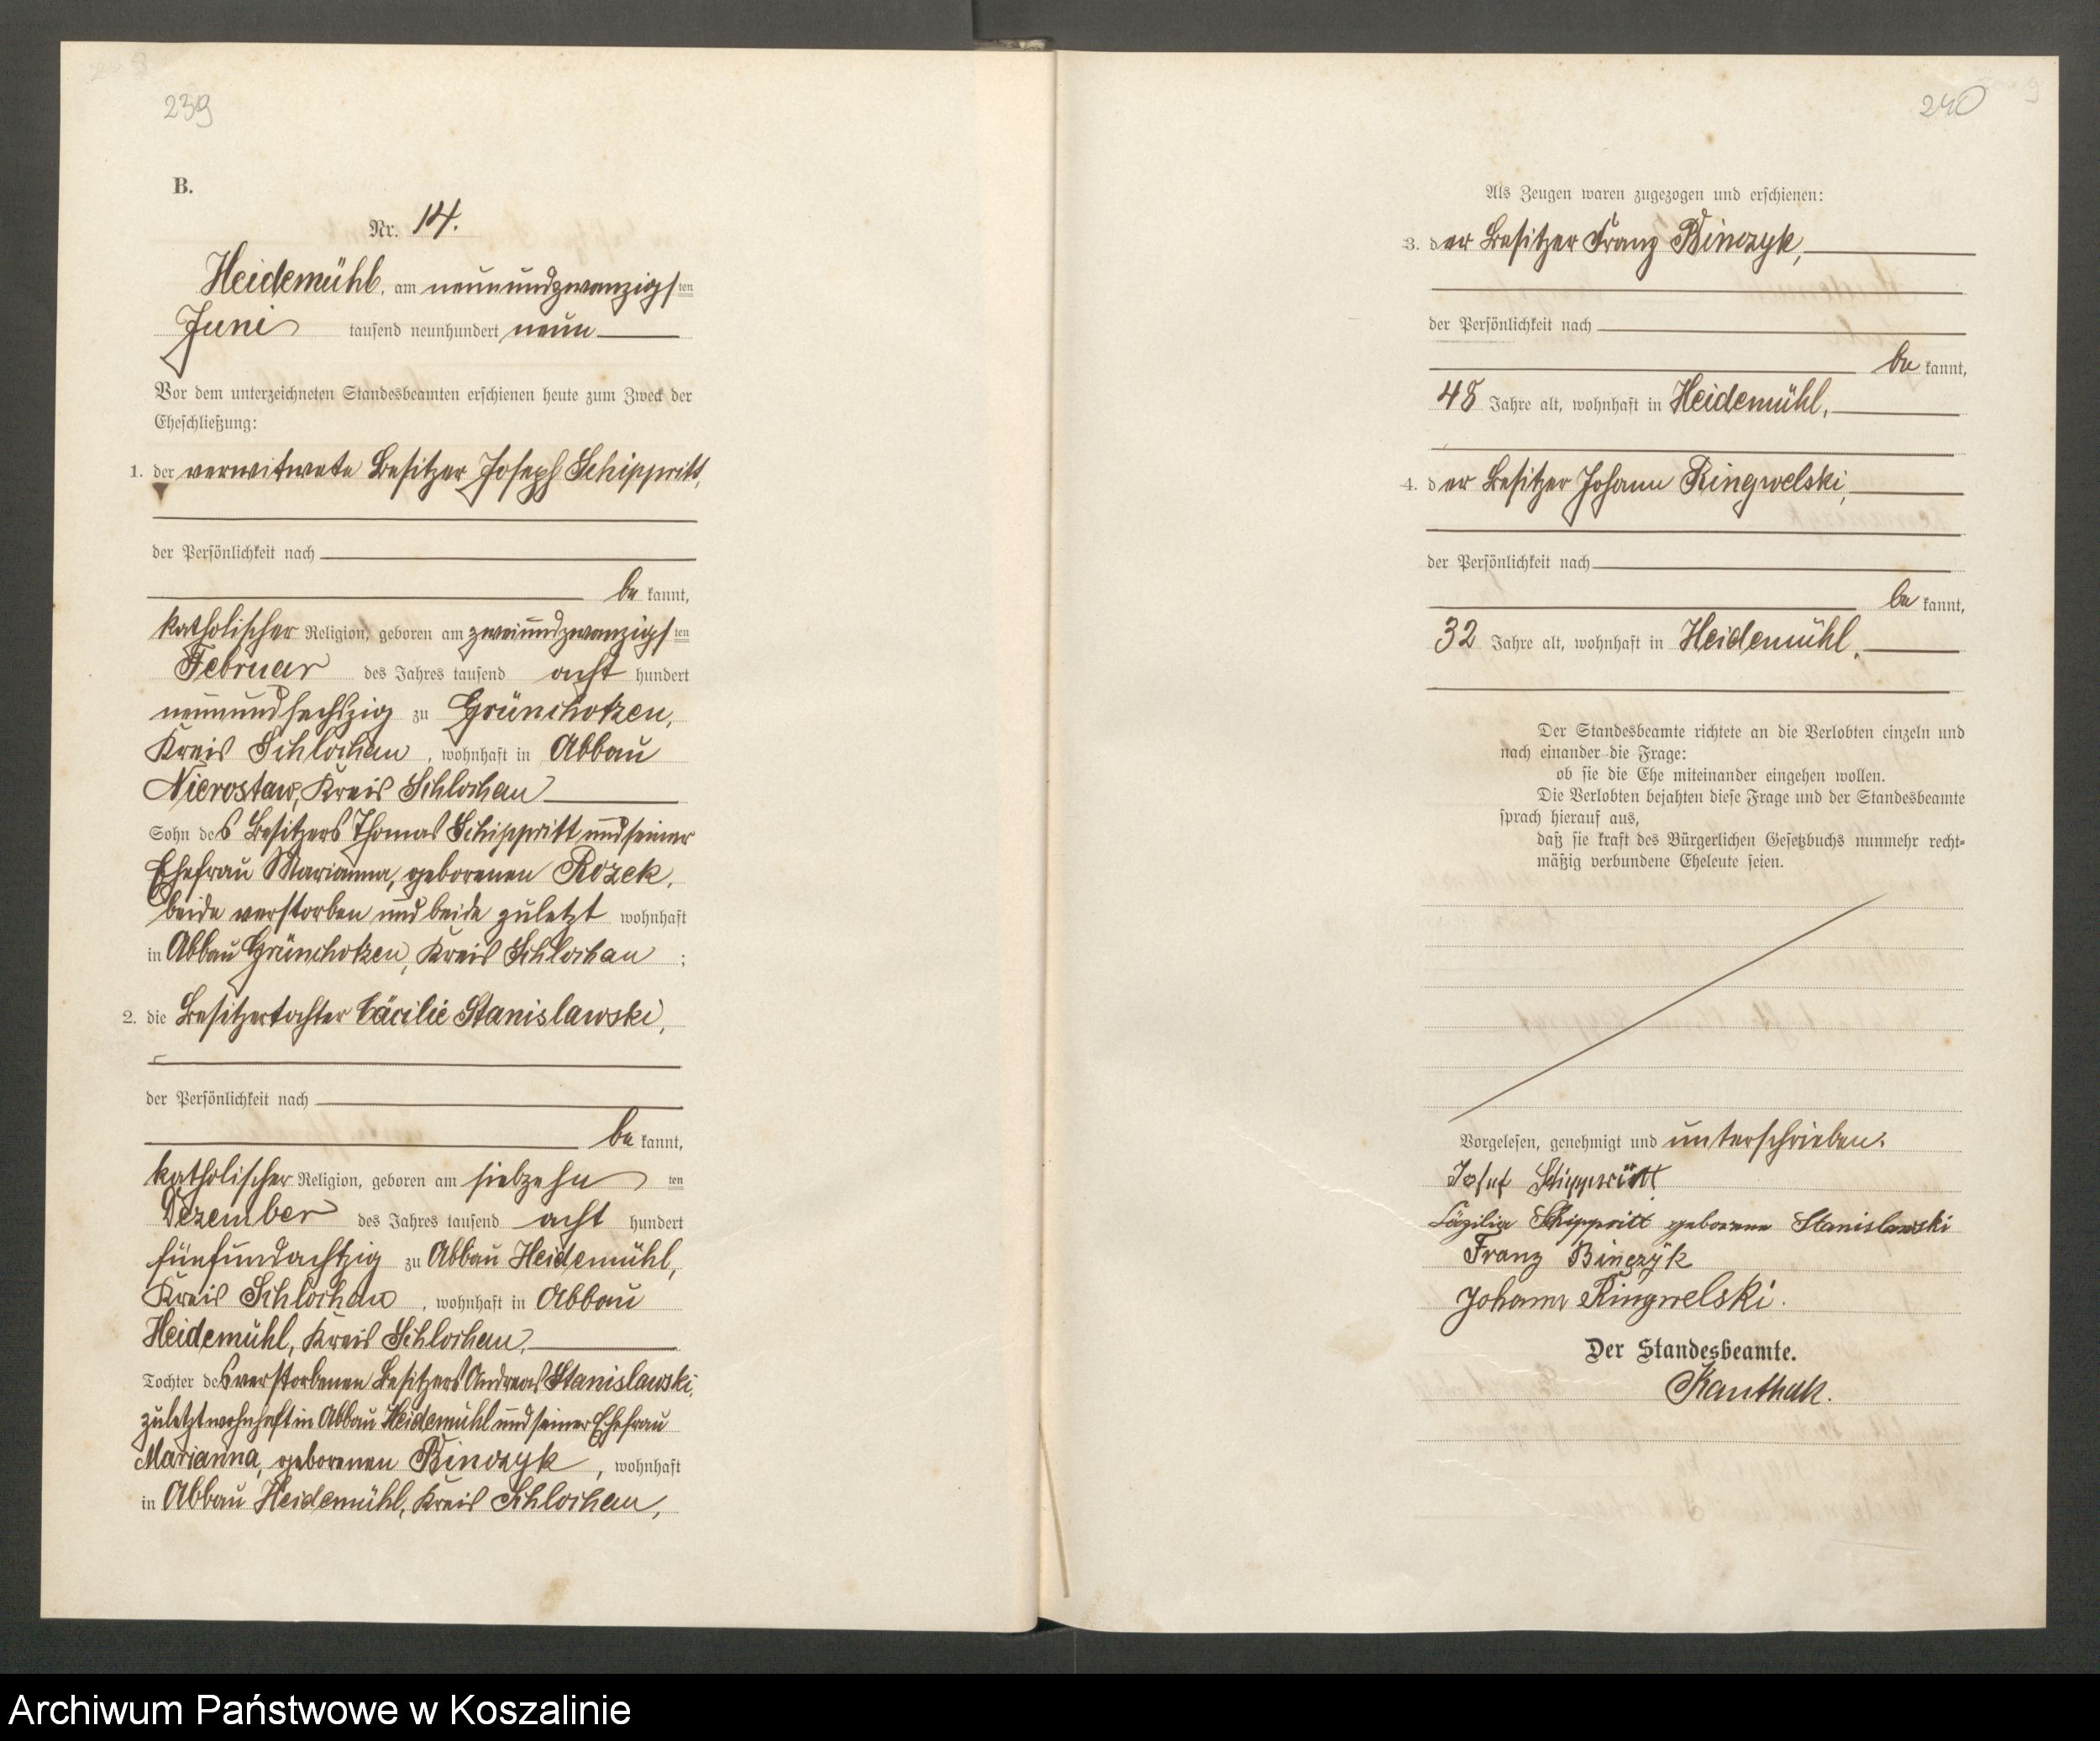 239
B.
Nr. 14.
Heidemühl, am neunundzwanzigsten
Juni tausend neunhundert neun
Vor dem unterzeichneten Standesbeamten erschienen heute zum Zweck der
Eheschließung:
1. der verwitwete Besitzer Joseph Schippritt,
der Persönlichkeit nach
bekannt,
katholischer Religion, geboren am zweiundzwanzigsten
Februar des Jahres tausend acht hundert
neunundsechszig zu Grünchotzen,
Kreis Schlochau, wohnhaft in Abbau
Nierostaw, Kreis Schlochau
Sohn des Besitzers Thomas Schippritt und seiner
Ehefrau Marianna, geborenen Rozek,
beide verstorben und beide zuletzt wohnhaft
in Abbau Grünchotzen, Kreis Schlochau ;
2. die Besitzertochter Cäcilie Stanislawski,
der Persönlichkeit nach
bekannt,
katholischer Religion, geboren am siebzehnten
Dezember des Jahres tausend acht hundert
fünfundachtzig zu Abbau Heidemühl,
Kreis Schlochau, wohnhaft in Abbau
Heidemühl, Kreis Schlochau,
Tochter des verstorbenen Besitzers Andreas Stanislawski,
zuletzt wohnhaft in Abbau Heidemühl und seiner Ehefrau
Marianna, geborenen Binczyk, wohnhaft
in Abbau Heidemühl, Kreis Schlochau,
240
Als Zeugen waren zugezogen und erschienen:
3. der Besitzer Franz Binczyk,
der Persönlichkeit nach
bekannt,
48 Jahre alt, wohnhaft in Heidemühl,
4. der Besitzer Johann Ringwelski,
der Persönlichkeit nach
bekannt,
32 Jahre alt, wohnhaft in Heidemühl,
Der Standesbeamte richtete an die Verlobten einzeln und
nach einander die Frage:
ob sie die Ehe miteinander eingehen wollen.
Die Verlobten bejahten diese Frage und der Standesbeamte
sprach hierauf aus,
daß sie kraft des Bürgerlichen Gesetzbuchs nunmehr recht-
mäßig verbundene Eheleute seien.
Vorgelesen, genehmigt und unterschrieben.
Josef Schippritt
Cäzilia Schippritt geborene Stanislawski
Franz Binczyk
Johann Ringwelski.
Der Standesbeamte.
Kanthak.
Archiwum Państwowe w Koszalinie